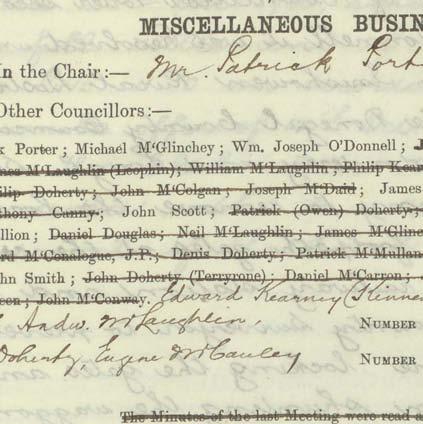 MISCELLANEOUS BUSIN
In the Chair:— Mr. Patrick Port
Other Councillors:—
k Porter; Michael M'Glinchey; Wm. Joseph O'Donnell; J
mes M'Laughlin (Leophin); William M'Laughlin; Philip Kear
ilip Doherty; John M'Colgan; Joseph M'Daid; James
thony Canny; John Scott; Patrick (Owen) Doherty;
llion; Daniel Douglas; Neil M'Laughlin; James M'Glinc
ard M'Conalogue, J.P.; Denis Doherty; Patrick M'Mullan
hn Smith; John Doherty (Terryrone); Daniel M'Carron;
een; John M'Conway. Edward Kearney (Kinne
Andw. McLaughlin NUMBER
Doherty, Eugene McCauley NUMBER
The Minutes of the last Meeting were read a